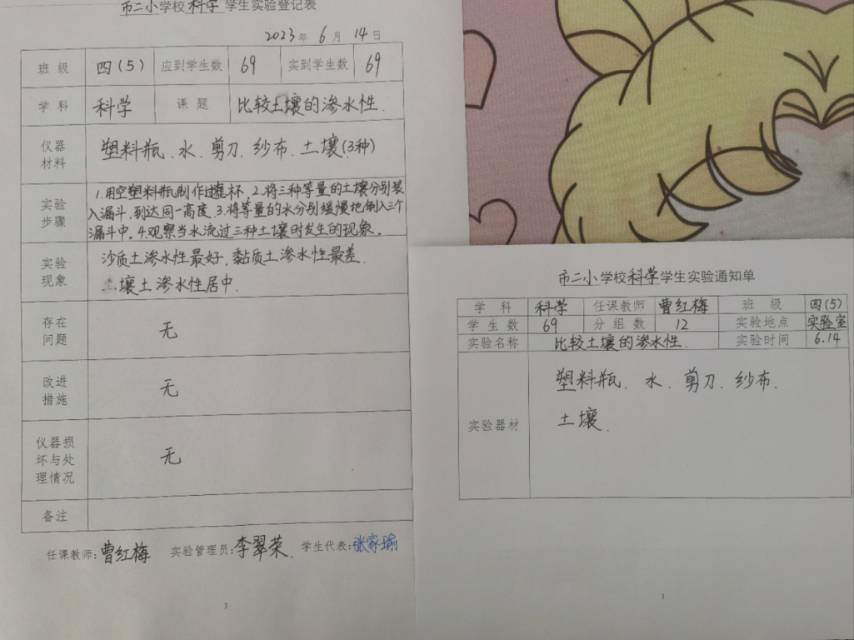 市二小学校科学学生实验登记表
2023年6月14日
班级 四(5) 应到学生数 69 实到学生数 69
学科 科学 课题 比较土壤的渗水性.
仪器材料 塑料瓶、水、剪刀、纱布、土壤(3种)
实验步骤 1.用空塑料瓶制作过滤杯 2.将三种等量的土壤分别装
入漏斗,到达同一高度.3.将等量的水分别缓慢地倒入三个
漏斗中。4.观察当水流过三种土壤时发生的现象。
实验现象 沙质土渗水性最好,黏质土渗水性最差.
壤土渗水性居中.
存在问题 无
改进措施 无
仪器损坏与处理情况 无
备注
任课教师:曹红梅 实验管理员:李翠荣. 学生代表:张家瑜
3
市二小学校科学学生实验通知单
学科 科学 任课教师 曹红梅 班级 四(5)
学生数 69 分组数 12 实验地点 实验室
实验名称 比较土壤的渗水性. 实验时间 6.14
实验器材 塑料瓶、水、剪刀、纱布、
土壤.
1